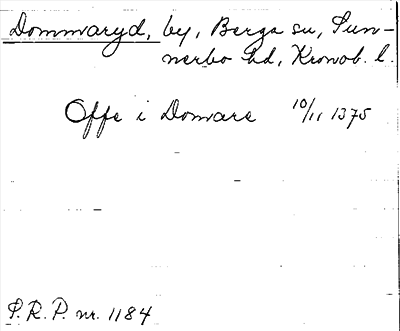 Dommaryd, by, Berga sn, Sun-
nerbo hd, Kronob. l.
Offe i Domare 10/11 1375
P.R.P. nr. 1184